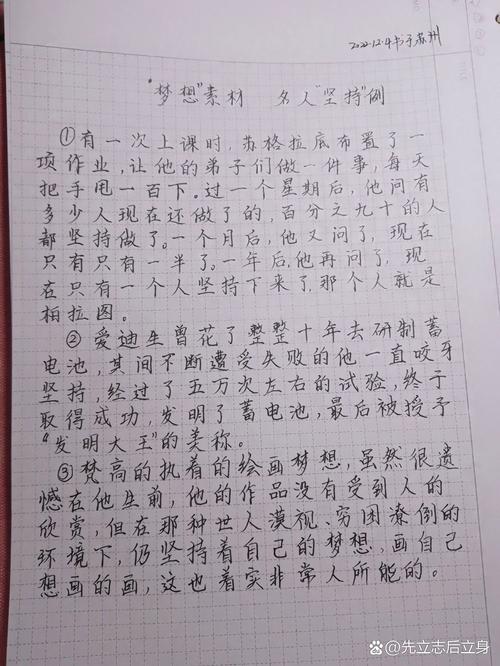 2022.12.4书于苏州
“梦想”素材 名人“坚持”例
①有一次上课时,苏格拉底布置了一
项作业,让他的弟子们做一件事,每天
把手甩一百下。过一个星期后,他问有
多少人现在还做了的,百分之九十的人
都坚持做了。一个月后,他又问了,现在
只有只有一半了。一年后,他再问了,现
在只有一个人坚持下来了,那个人就是
柏拉图。
②爱迪生曾花了整整十年去研制蓄
电池,其间不断遭受失败的他一直咬牙
坚持,经过了五万次左右的试验,终于
取得成功,发明了蓄电池,最后被授予
“发明大王”的美称。
③梵高的执着的绘画梦想,虽然很遗
憾在他生前,他的作品没有受到人的
欣赏,但在那种世人漠视、穷困潦倒的
环境下,仍坚持着自己的梦想,画自己
想画的画,这也着实非常人所能的。
@先立志后立身